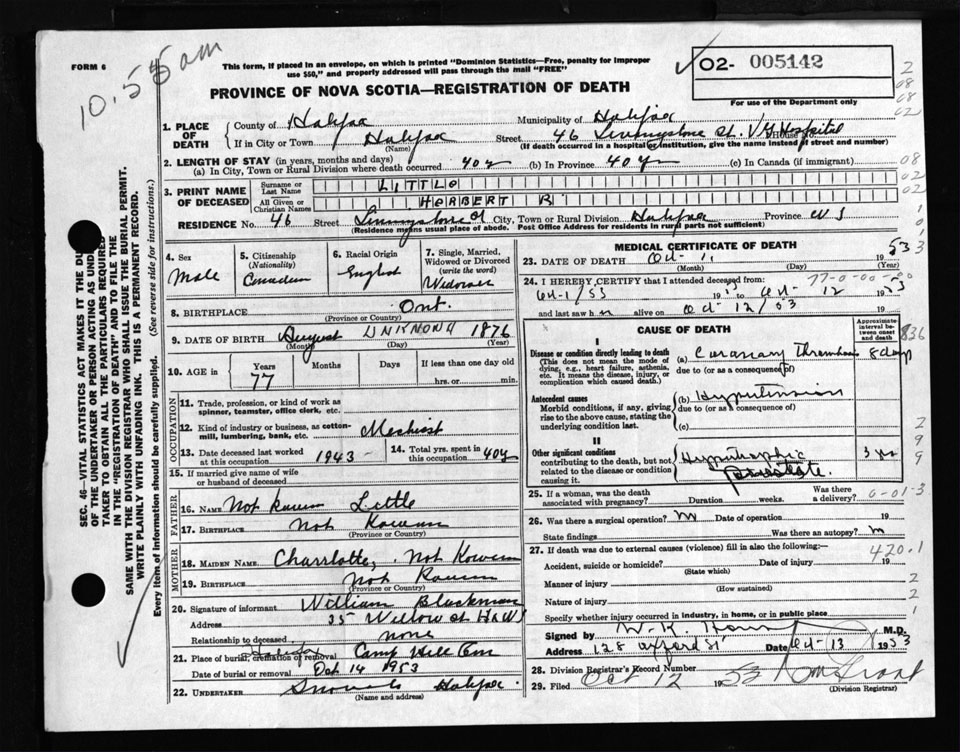 FORM 6
10.55 am
This form, if placed in an envelope, on which is printed "Dominion Statistics—Free, penalty for improper
use $50," and properly addressed will pass through the mail "FREE"
PROVINCE OF NOVA SCOTIA—REGISTRATION OF DEATH
02- 005142
For use of the Department only
1. PLACE OF DEATH
County of Halifax Municipality of Halifax
If in City or Town Halifax Street 46 Livingstone St. V G Hospital House No.
(Name) (If death occurred in a hospital or institution, give the name instead of street and number)
2. LENGTH OF STAY (in years, months and days)
(a) In City, Town or Rural Division where death occurred 40y (b) In Province 40y (c) In Canada (if immigrant)
3. PRINT NAME OF DECEASED
Surname or Last Name LITTLE
All Given or Christian Names HERBERT B.
RESIDENCE No. 46 Street Livingstone St City, Town or Rural Division Halifax Province N S
(Residence means usual place of abode. Post Office Address for residents in rural parts not sufficient)
4. Sex
Male
5. Citizenship
(Nationality)
Canadian
6. Racial Origin
English
7. Single, Married, Widowed or Divorced
(write the word)
Widower
8. BIRTHPLACE Ont.
(Province or Country)
9. DATE OF BIRTH August UNKNOWN 1876
(Month) (Day) (Year)
10. AGE in
Years Months Days If less than one day old
77 hrs. or min.
OCCUPATION
11. Trade, profession, or kind of work as
spinner, teamster, office clerk, etc.
12. Kind of industry or business, as cotton-
mill, lumbering, bank, etc.
13. Date deceased last worked
at this occupation 1943
14. Total yrs. spent in
this occupation 40y
15. If married give name of wife
or husband of deceased
FATHER
16. NAME Not known Little
17. BIRTHPLACE Not Known
(Province or Country)
MOTHER
18. MAIDEN NAME Charrlotte, Not Known
19. BIRTHPLACE Not Known
(Province or Country)
20. Signature of informant William Blackman
Address 35 Willow St
Relationship to deceased none
21. Place of burial, cremation or removal Halifax Camp Hill Cem
Date of burial or removal Oct 14 1953
22. UNDERTAKER Snows Halifax.
(Name and address)
MEDICAL CERTIFICATE OF DEATH
23. DATE OF DEATH Oct. 1953
(Month) (Day) (Year)
24. I HEREBY CERTIFY that I attended deceased from:
77-0-00-00
Oct-1/53 19 to Oct- 12 1953
and last saw h m alive on Oct-12/53
CAUSE OF DEATH
Approximate interval between onset and death
I
Disease or condition directly leading to death
(This does not mean the mode of dying, e.g., heart failure, asthenia, etc. It means the disease, injury, or complication which caused death.)
(a) Coronary Thrombosis 8 days
due to (or as a consequence of)
Antecedent causes
Morbid conditions, if any, giving rise to the above cause, stating the underlying condition last.
(b) Hypertension
due to (or as a consequence of)
(c)
II
Other significant conditions
contributing to the death, but not related to the disease or condition causing it.
Hypertrophic 3 yrs
Prostate.
25. If a woman, was the death
associated with pregnancy? Duration weeks. Was there a delivery? 0-01-3
26. Was there a surgical operation? no Date of operation 19
State findings Was there an autopsy? no
27. If death was due to external causes (violence) fill in also the following:— 420.1
Accident, suicide or homicide? Date of injury 19
(State which)
Manner of injury
(How sustained)
Nature of injury
Specify whether injury occurred in industry, in home, or in public place
Signed by M.D.
Address 128 Oxford St Date Oct-13 1953
28. Division Registrar's Record Number
29. Filed Oct 12 1953
(Division Registrar)
SEC. 46—VITAL STATISTICS ACT MAKES IT THE DUTY
OF THE UNDERTAKER OR PERSON ACTING AS UNDERTAKER
TO OBTAIN ALL THE PARTICULARS REQUIRED
IN THE "REGISTRATION OF DEATH" AND TO FILE THE
SAME WITH THE DIVISION REGISTRAR WHO SHALL ISSUE THE BURIAL PERMIT.
WRITE PLAINLY WITH UNFADING INK. THIS IS A PERMANENT RECORD.
Every item of information should be carefully supplied. (See reverse side for instructions.)